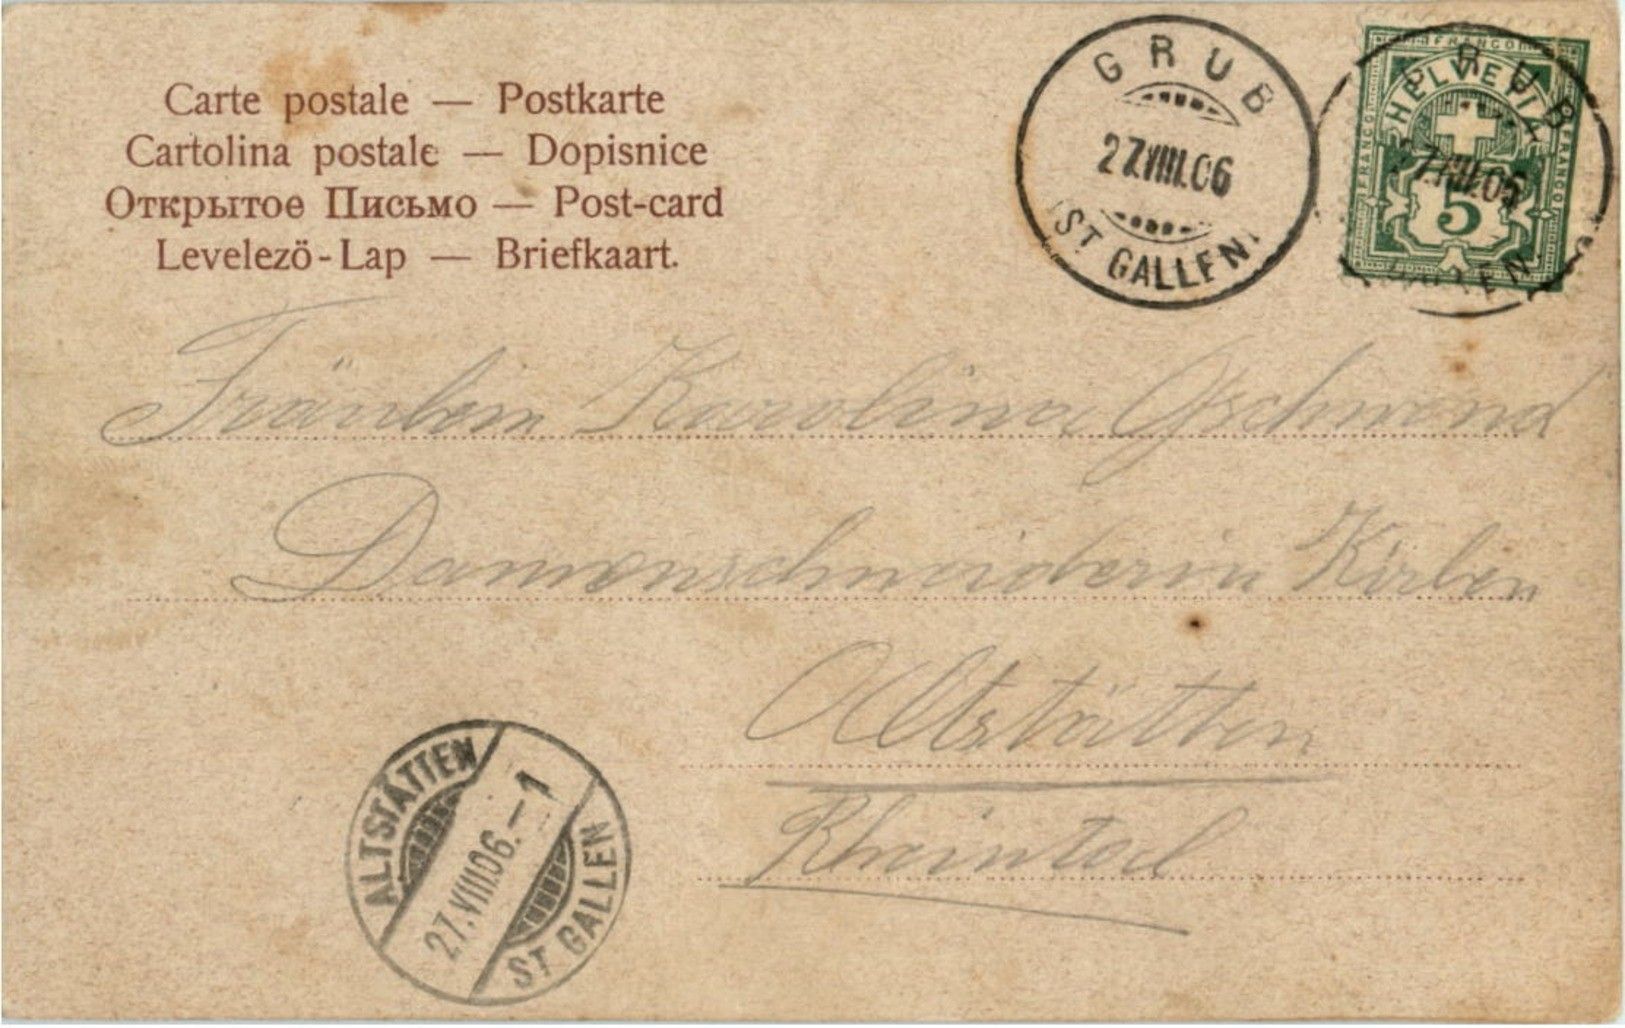 Carte postale — Postkarte
Cartolina postale — Dopisnice
Открытое Письмо — Post-card
Levelező-Lap — Briefkaart.
GRUB
27.VIII.06
(ST GALLEN)
FRANCO
HELVETIA
FRANCO
FRANCO
5
GRUB
27.VIII.06
GALLEN
Fräulein Karolina Gschwend
Damenschneiderin
Altstätten
Rheintal
ALTSTÄTTEN
27.VIII.06.–1
ST GALLEN